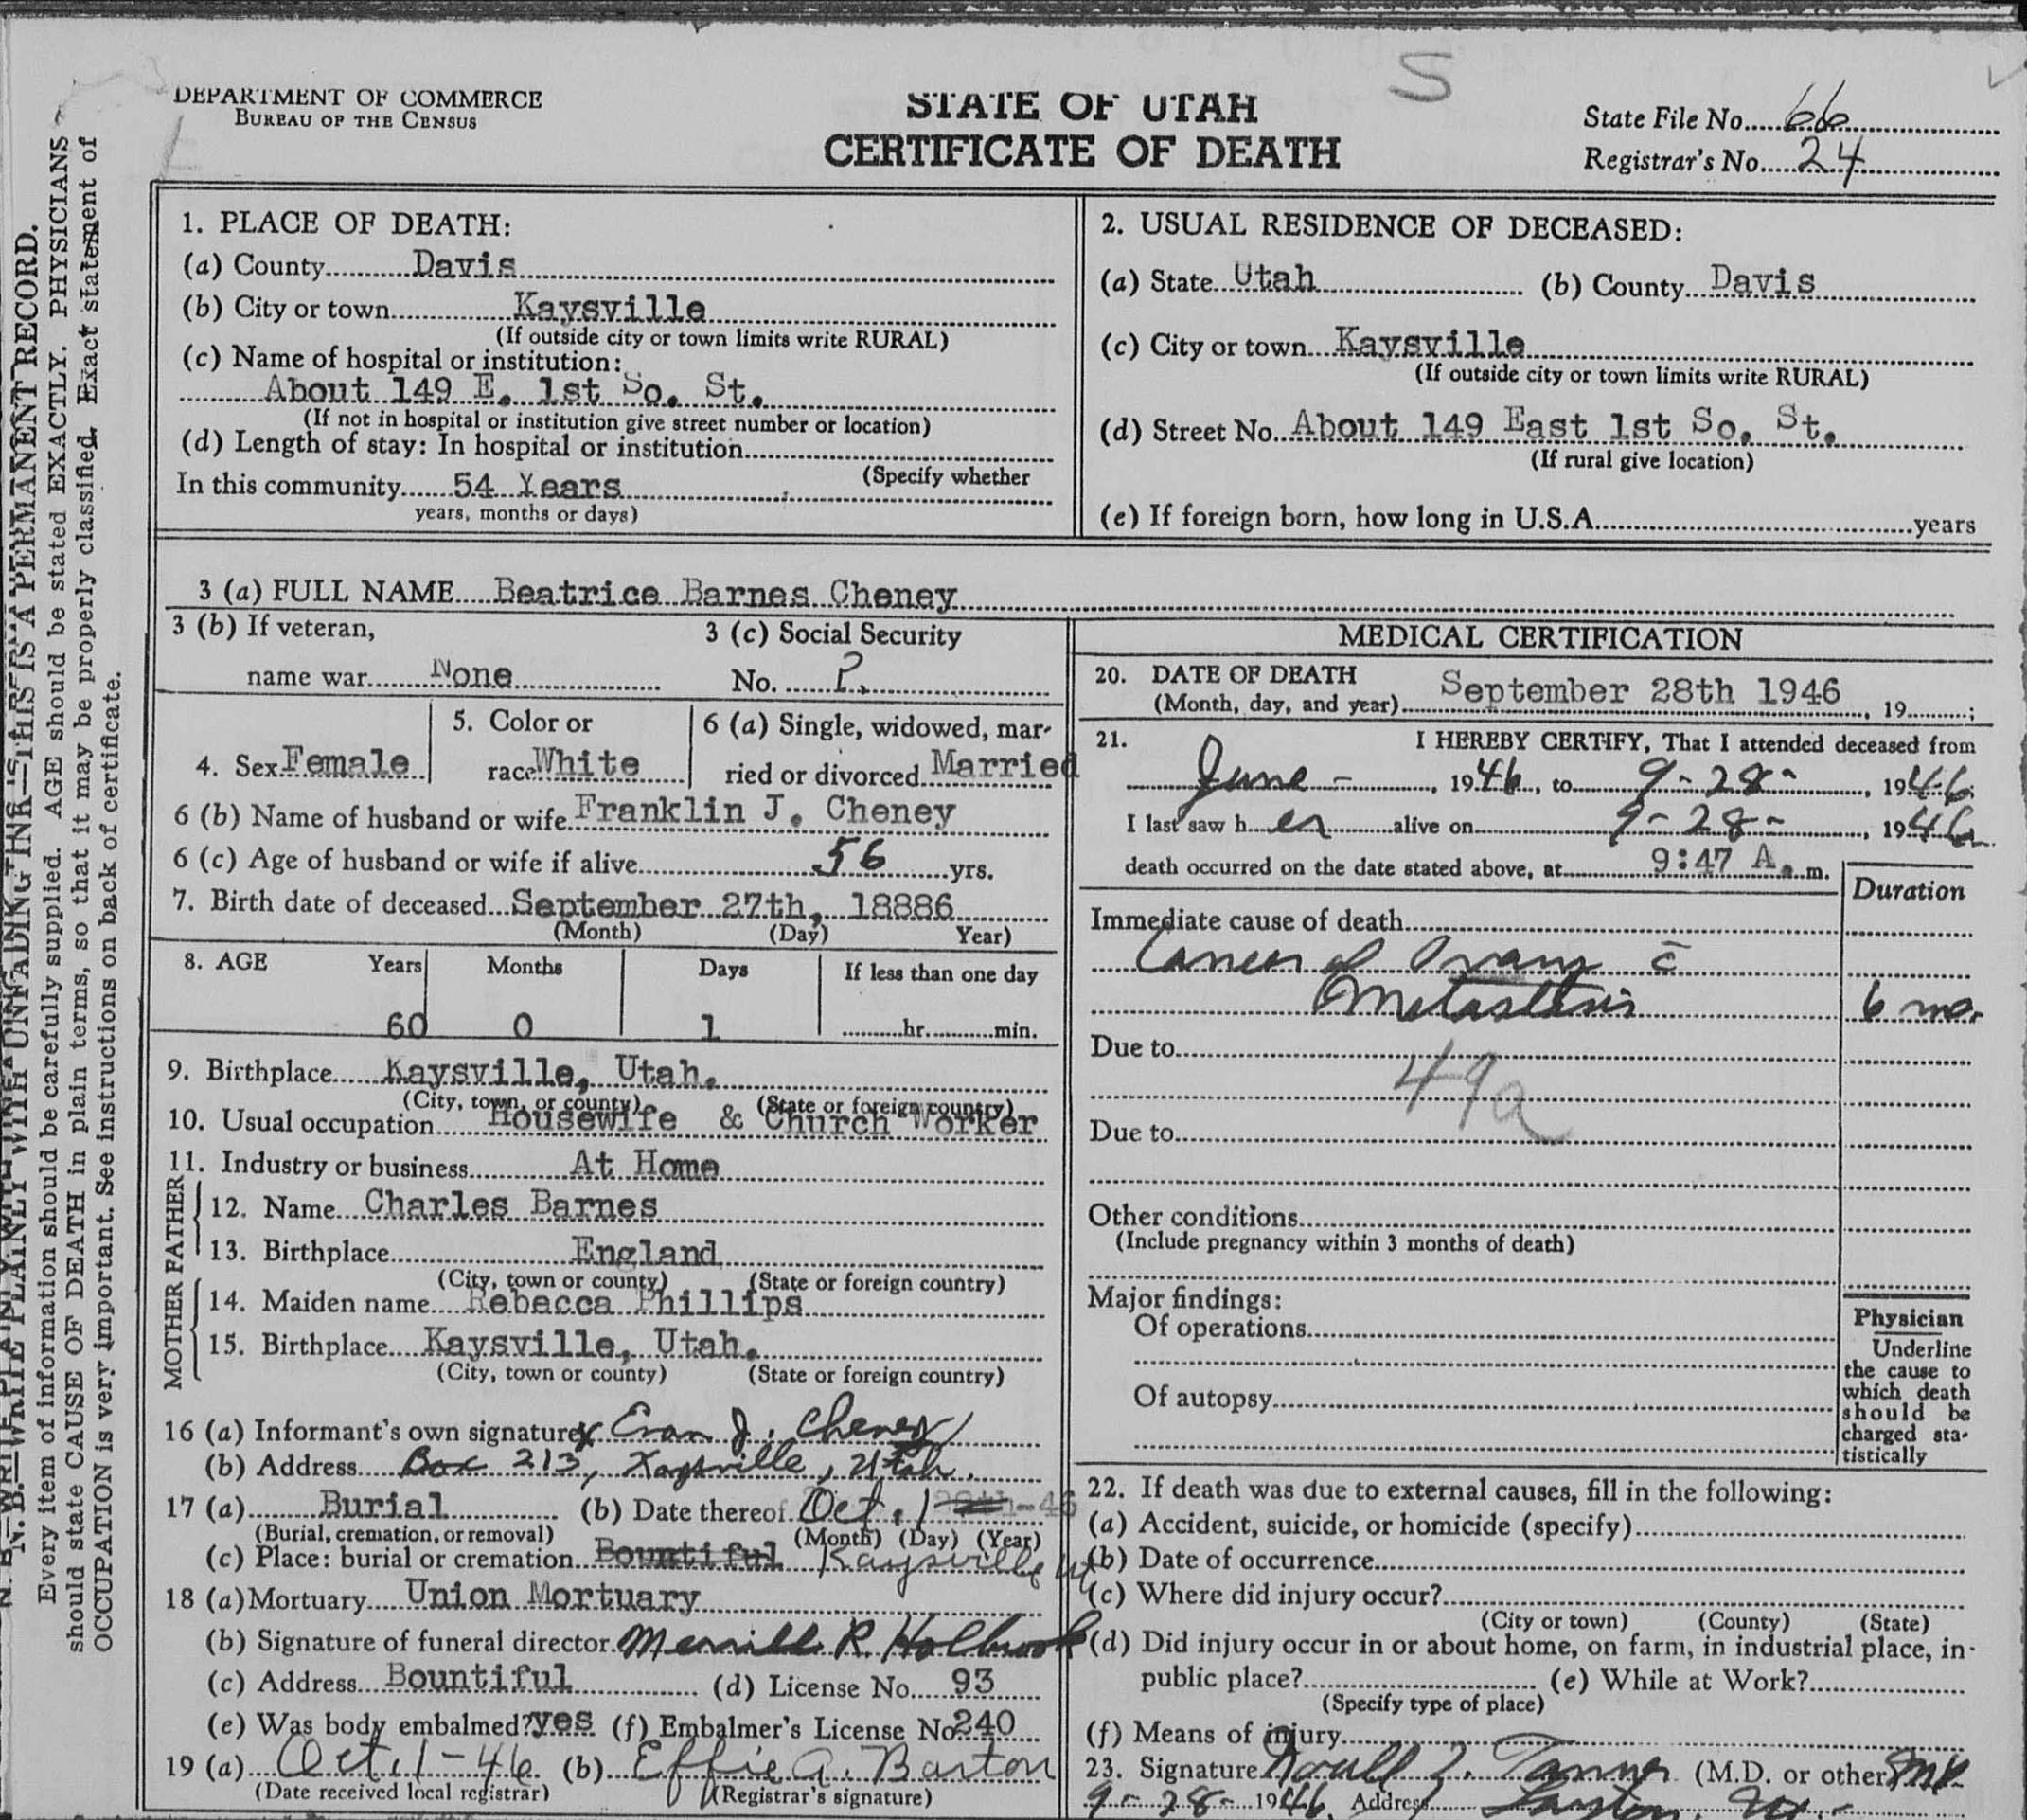 S
DEPARTMENT OF COMMERCE
BUREAU OF THE CENSUS
STATE OF UTAH
CERTIFICATE OF DEATH
State File No. 66
Registrar's No. 24
N. B.—WRITE PLAINLY WITH UNFADING INK—THIS IS A PERMANENT RECORD.
Every item of information should be carefully supplied. AGE should be stated EXACTLY. PHYSICIANS
should state CAUSE OF DEATH in plain terms, so that it may be properly classified. Exact statement of
OCCUPATION is very important. See instructions on back of certificate.
1. PLACE OF DEATH:
(a) County Davis
(b) City or town Kaysville
(If outside city or town limits write RURAL)
(c) Name of hospital or institution:
About 149 E. 1st So. St.
(If not in hospital or institution give street number or location)
(d) Length of stay: In hospital or institution
(Specify whether
In this community 54 Years
years, months or days)
2. USUAL RESIDENCE OF DECEASED:
(a) State Utah (b) County Davis
(c) City or town Kaysville
(If outside city or town limits write RURAL)
(d) Street No. About 149 East 1st So. St.
(If rural give location)
(e) If foreign born, how long in U.S.A. years
3 (a) FULL NAME Beatrice Barnes Cheney
3 (b) If veteran,
name war None
3 (c) Social Security
No. ?
4. Sex Female
5. Color or
race White
6 (a) Single, widowed, mar-
ried or divorced Married
6 (b) Name of husband or wife Franklin J. Cheney
6 (c) Age of husband or wife if alive 56 yrs.
7. Birth date of deceased September 27th, 18886
(Month) (Day) Year)
8. AGE Years Months Days If less than one day
60 0 1 hr. min.
9. Birthplace Kaysville, Utah.
(City, town, or county) (State or foreign country)
10. Usual occupation Housewife & Church Worker
11. Industry or business At Home
FATHER
12. Name Charles Barnes
13. Birthplace England
(City, town or county) (State or foreign country)
MOTHER
14. Maiden name Rebecca Phillips
15. Birthplace Kaysville, Utah.
(City, town or county) (State or foreign country)
16 (a) Informant's own signature x Evan J. Cheney
(b) Address Box 213, Kaysville, Utah.
17 (a) Burial (b) Date thereof Oct. 1 -46
(Burial, cremation, or removal) (Month) (Day) (Year)
(c) Place: burial or cremation Bountiful Kaysville Ut
18 (a) Mortuary Union Mortuary
(b) Signature of funeral director Merrill R. Holbrook
(c) Address Bountiful (d) License No. 93
(e) Was body embalmed? yes (f) Embalmer's License No 240
19 (a) Oct. 1-46 (b) Effie A. Barton
(Date received local registrar) (Registrar's signature)
MEDICAL CERTIFICATION
20. DATE OF DEATH
(Month, day, and year) September 28th 1946, 19 ;
21. I HEREBY CERTIFY, That I attended deceased from
June -, 1946, to 9-28-, 1946;
I last saw h er alive on 9-28-, 1946
death occurred on the date stated above, at 9:47 A. m.
Duration
Immediate cause of death
Cancer of Ovary c̄
Metastasis 6 mo.
Due to
49a
Due to
Other conditions
(Include pregnancy within 3 months of death)
Major findings:
Of operations
Of autopsy
Physician
Underline
the cause to
which death
should be
charged sta-
tistically
22. If death was due to external causes, fill in the following:
(a) Accident, suicide, or homicide (specify)
(b) Date of occurrence
(c) Where did injury occur?
(City or town) (County) (State)
(d) Did injury occur in or about home, on farm, in industrial place, in-
public place? (e) While at Work?
(Specify type of place)
(f) Means of injury
23. Signature Noall Z. Tanner (M.D. or other MD
9-28- 1946 Address Layton, Ut.